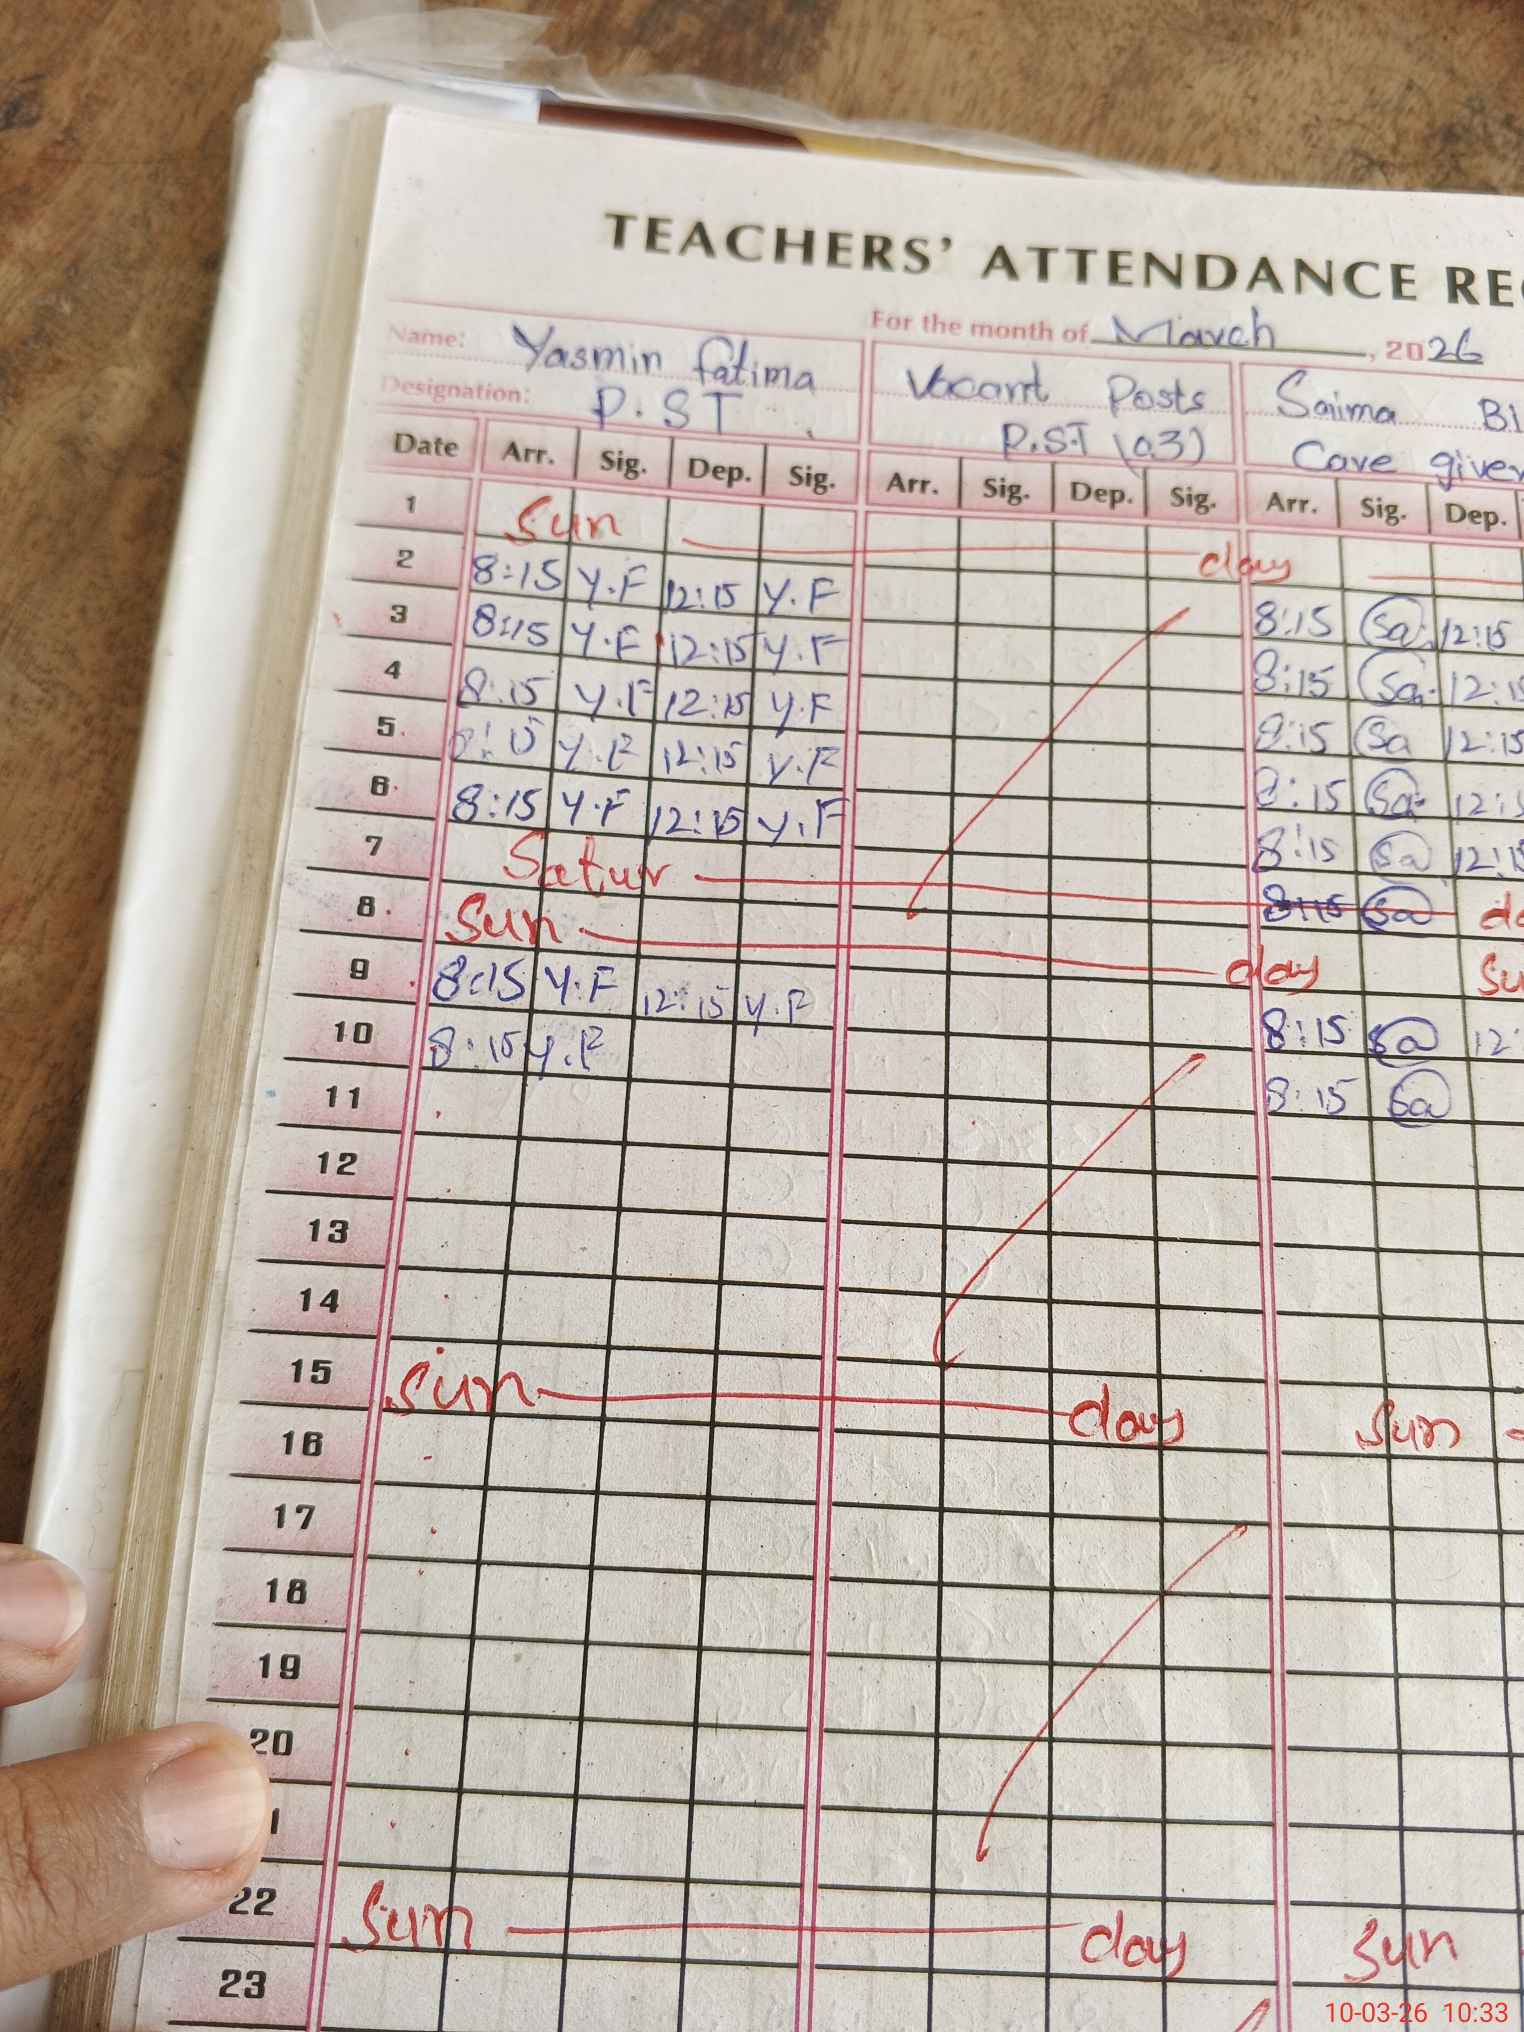 TEACHERS' ATTENDANCE RE
For the month of March, 2026
Name: Yasmin fatima Vacant Posts Saima
Designation: P.ST P.ST (03) Cave given
Date Arr. Sig. Dep. Sig. Arr. Sig. Dep. Sig. Arr. Sig. Dep.
1 Sun day
2 8:15 Y.F 12:15 Y.F 8:15 Sa 12:15
3 8:15 Y.F 12:15 Y.F 8:15 Sa 12:15
4 8:15 Y.F 12:15 Y.F 8:15 Sa 12:15
5 Y.F 12:15 Y.F 8:15 Sa
6 8:15 Y.F 12:15 Y.F 8:15 Sa 12:15
7 Satur 8:15 Sa
8 Sun day
9 8:15 Y.F 12:15 Y.F 8:15 Sa 12:
10 8:15 Y.F 8:15 Sa
11
12
13
14
15 Sun day Sun
16
17
18
19
20
1
22 Sun day Sun
23
10-03-26 10:33